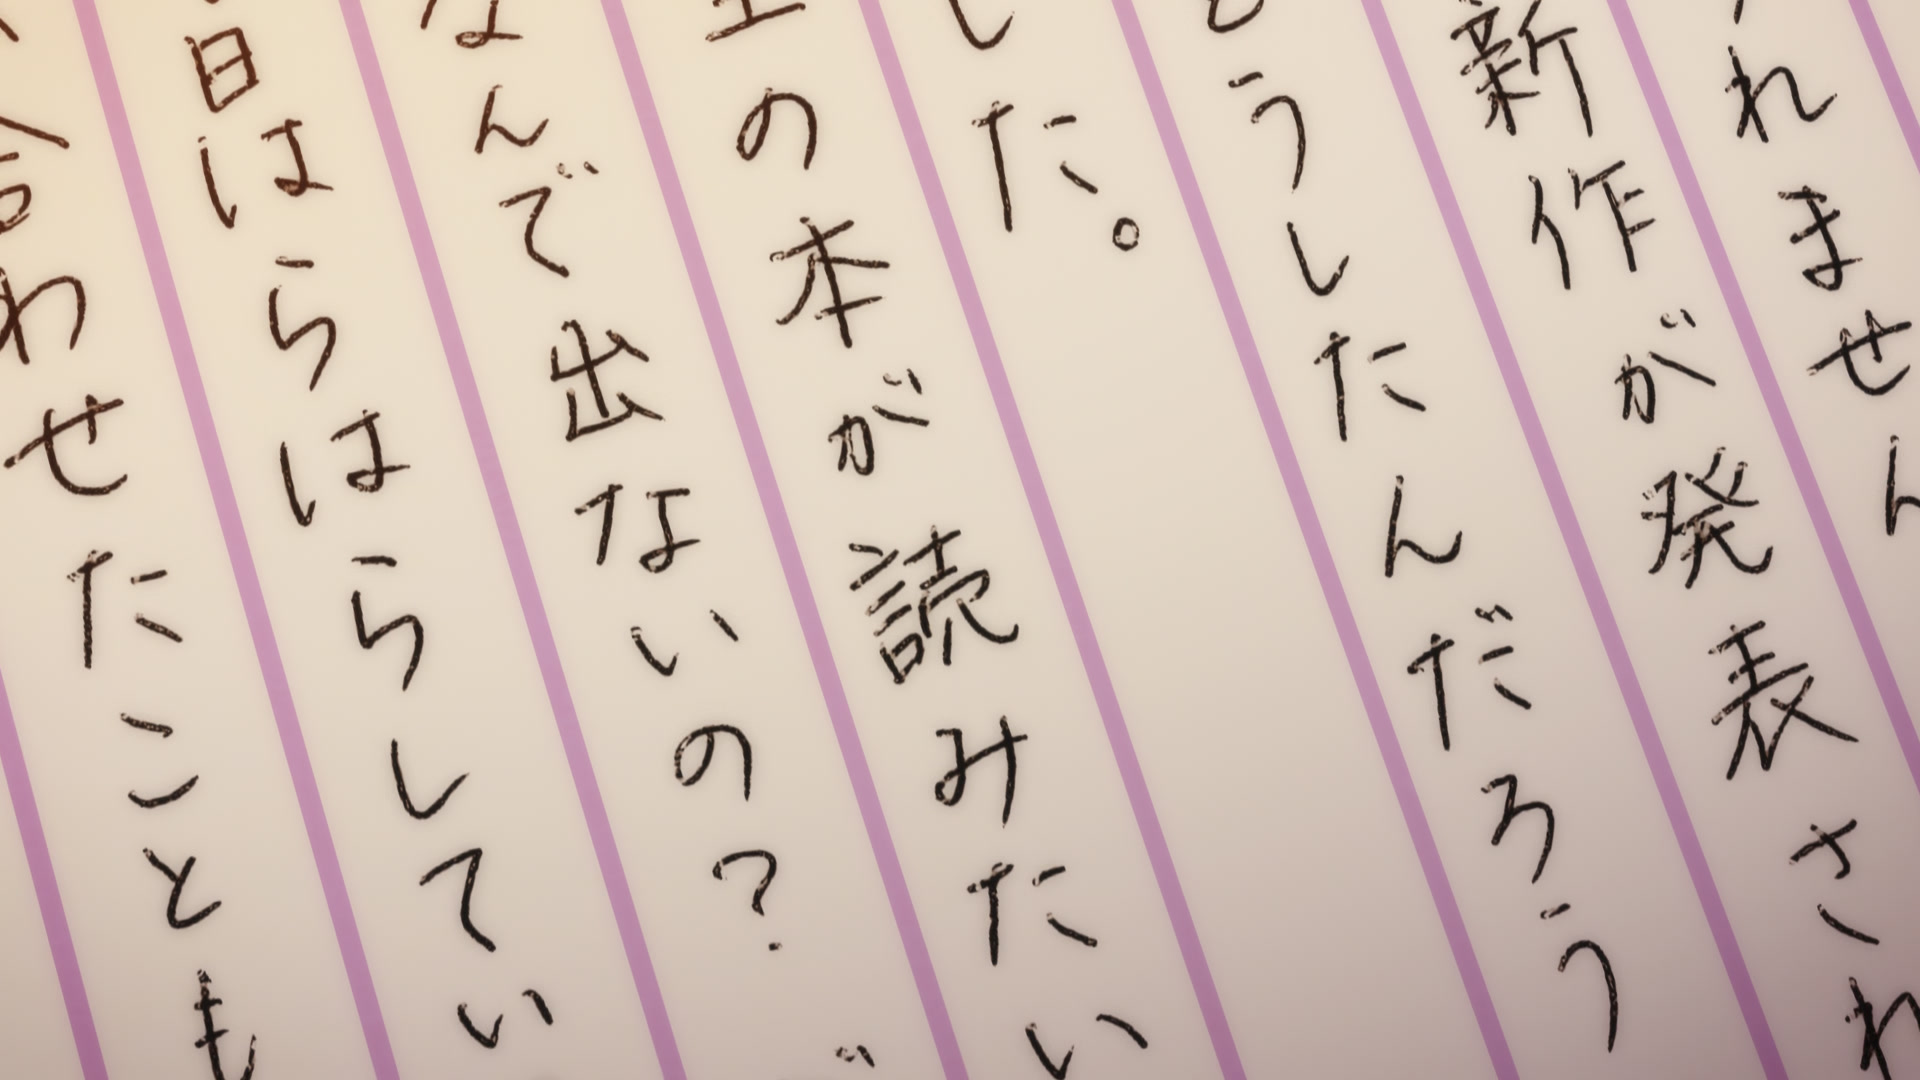 れません
新作が発表され
どうしたんだろう
した。
の本が読みたい
なんで出ないの?
日はらはらしてい
合わせたことも